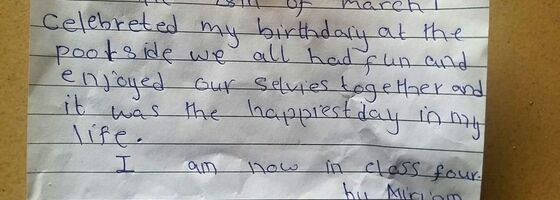 of march I
celebreted my birthday at the
poolside we all had fun and
enjoyed our selvies together and
it was the happiest day in my
life.
I am now in class four.
by Miriam